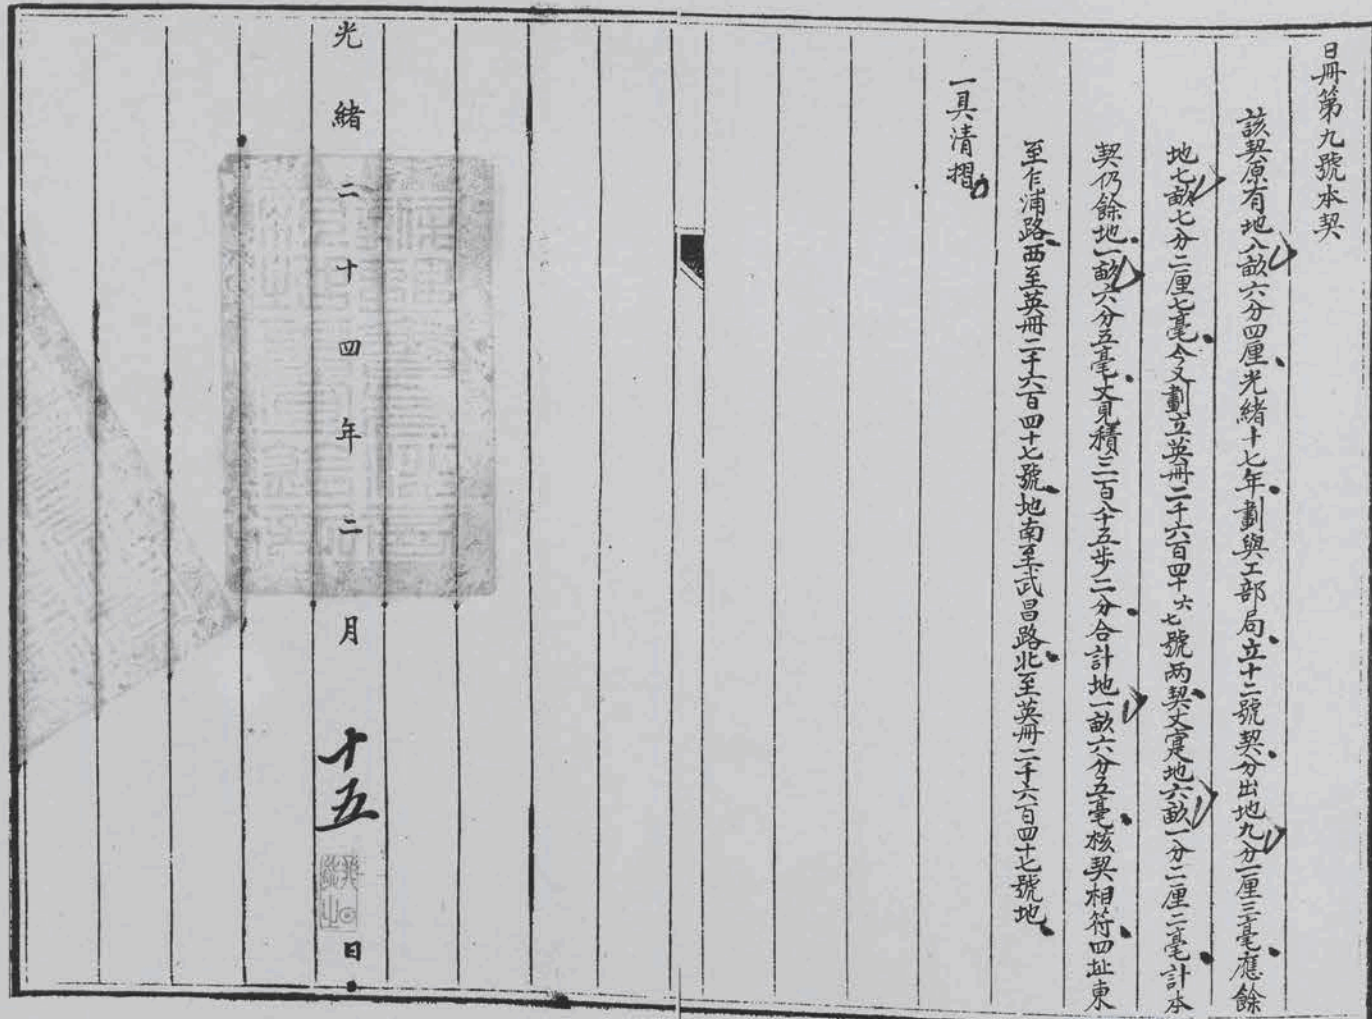 日冊第九號本契
該契原有地八畝六分四厘光緒十七年劃與工部局立十二號契分出地九分一厘三毫應餘
地七畝七分二厘七毫今又劃立英冊二千六百四十六七號两契丈寔地六畝一分二厘二毫計本
契仍餘地一畝六分五毫丈見積三百八十五步二分合計地一畝六分五毫核契相符四址東
至乍浦路西至英冊二千六百四十七號地南至武昌路北至英冊二千六百四十七號地
一具清摺
光緒二十四年二月十五日